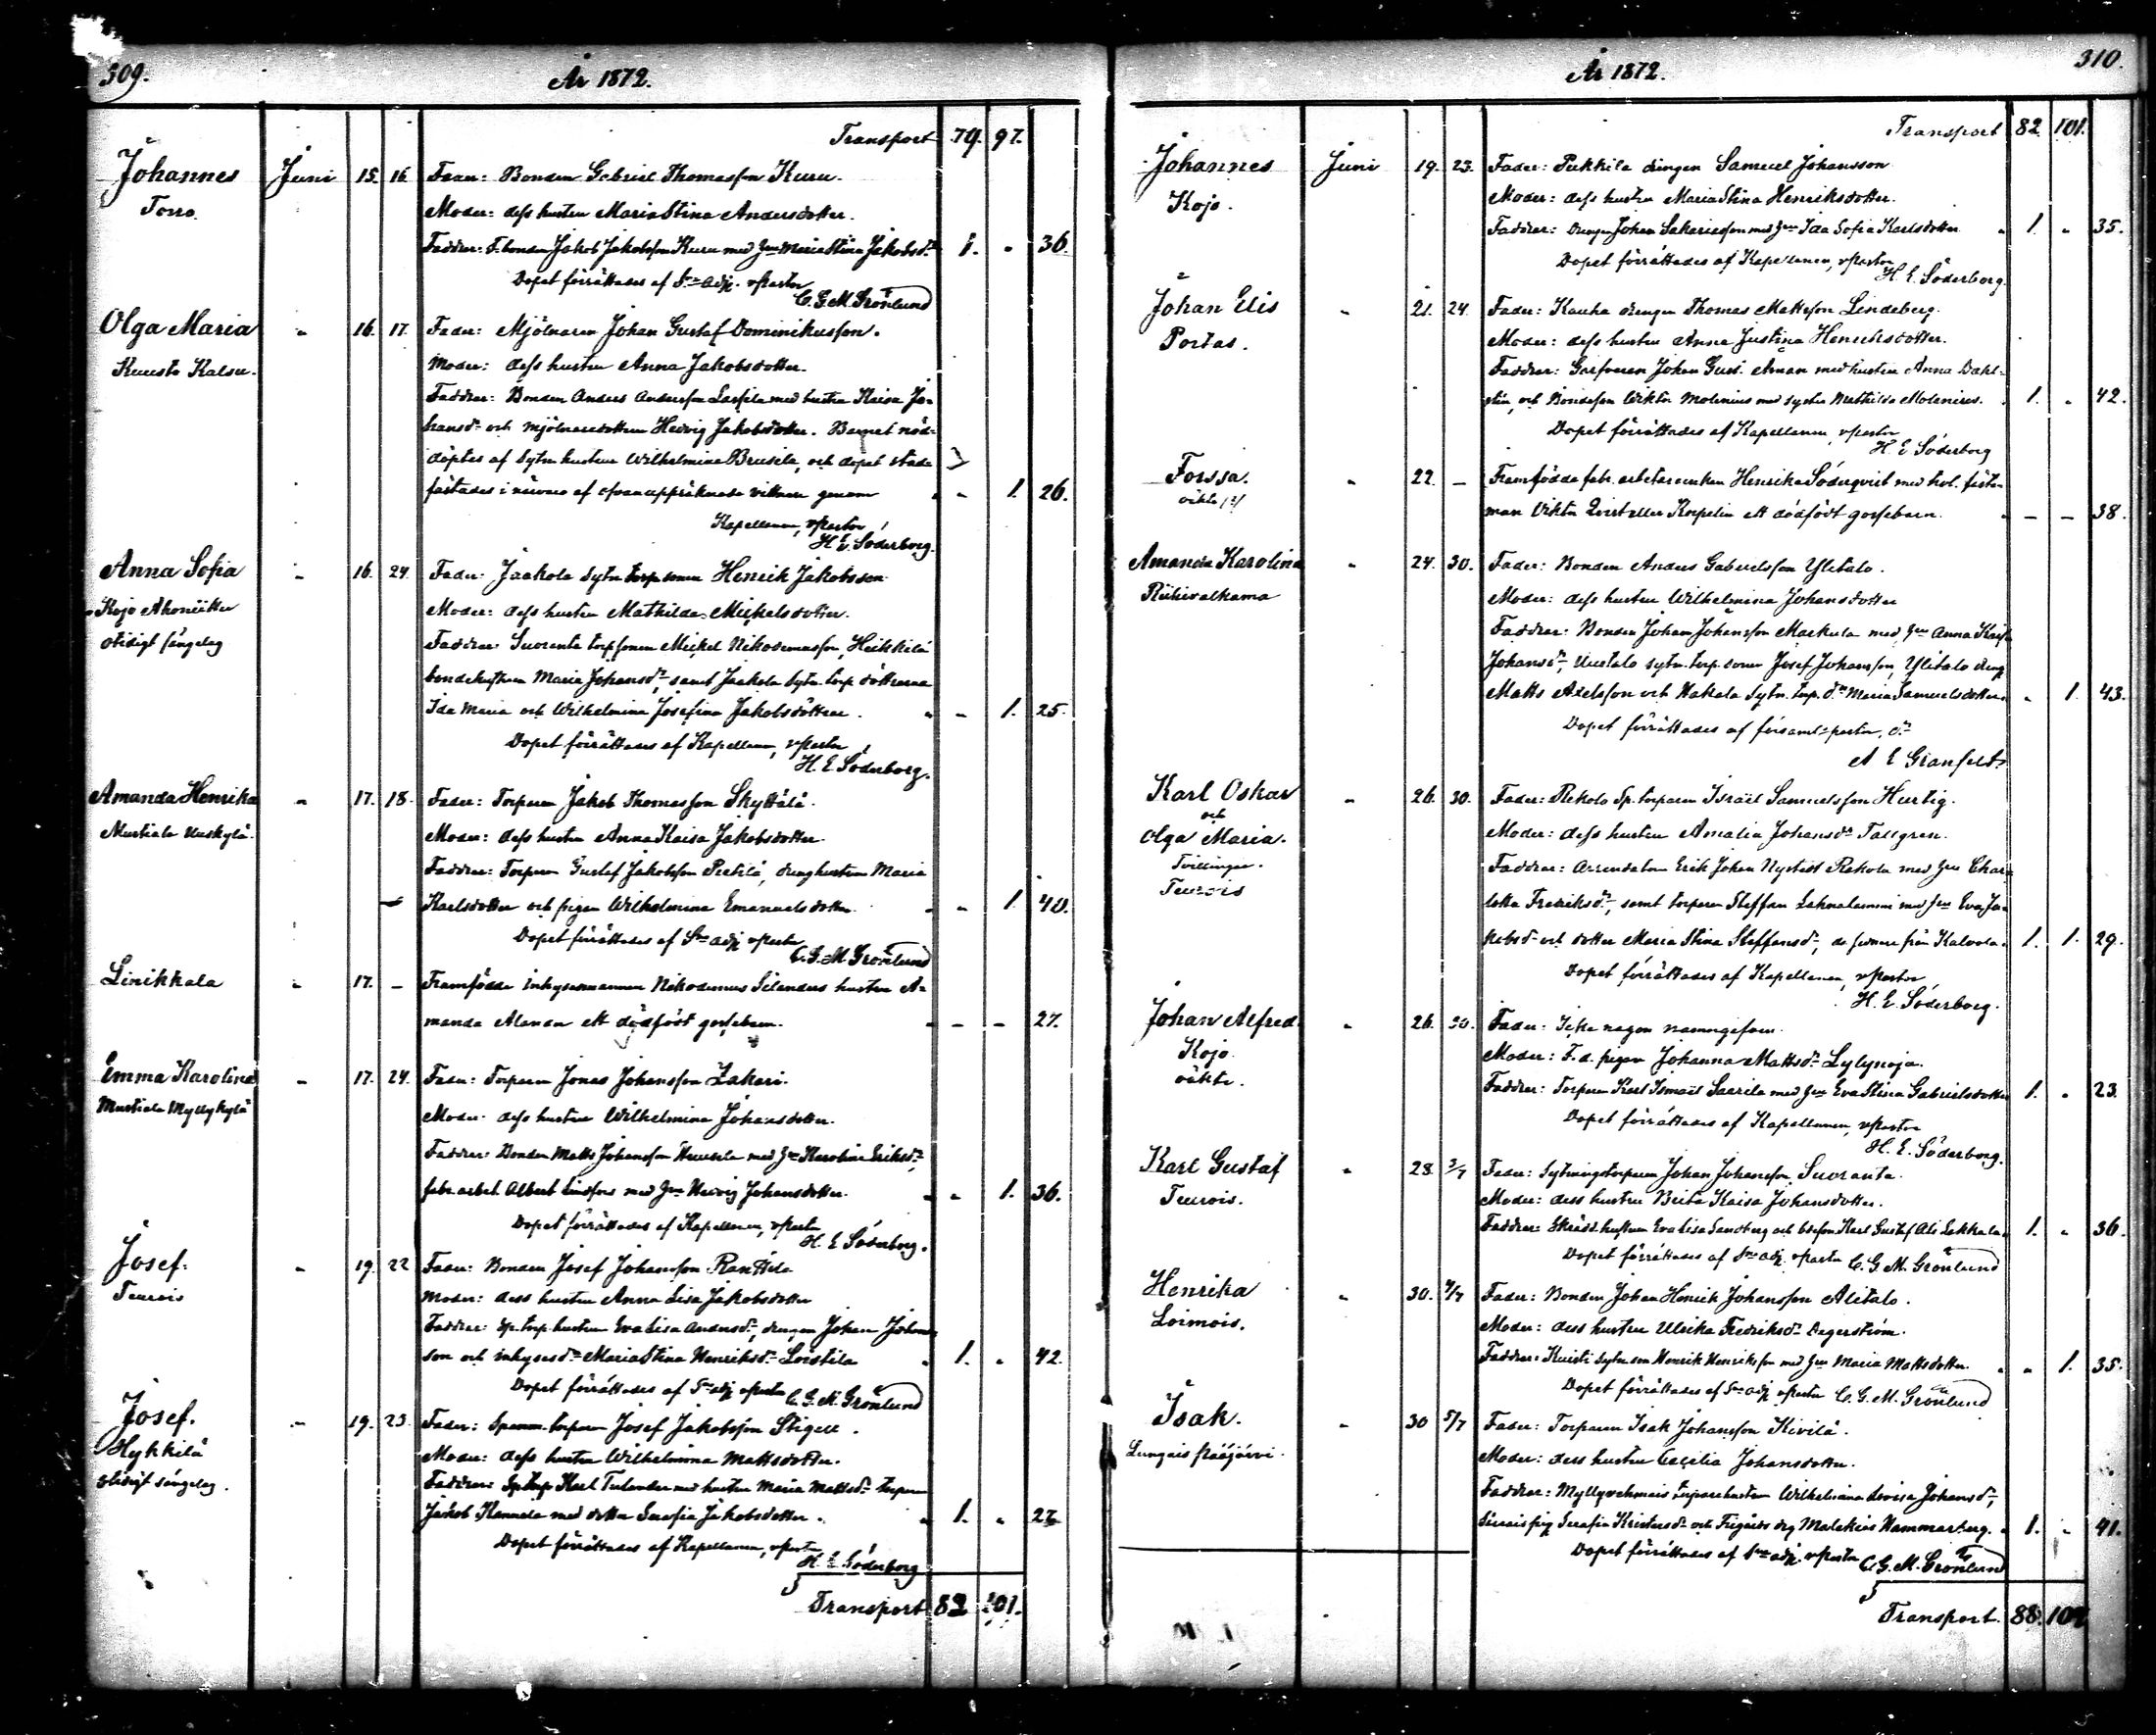 309.
År 1872.
Transport 79. 97.
Johannes Juni 15. 16. Fader: Bonden Gabriel Thomasson Kuru.
Torro. Moder: dess hustru Maria Stina Andersdotter.
Faddrar: F. bonden Jakob Jakobsson Kuru med hru Maria Stina Jakobsdr 1. „ 36.
Dopet förrättades af Sne adj. vPastor
C. G. M. Grönlund
Olga Maria „ 16. 17. Fader: Mjölnaren Johan Gustaf Dominikusson.
Kuusto Kalsu. Moder: dess hustru Anna Jakobsdotter.
Faddrar: Bonden Anders Andersson Lassila med hustru Kaisa Jo-
hansdr och mjölnaredottern Hedvig Jakobsdotter. Barnet nöd-
döptes af sytn. hustrun Wilhelmina Brusila, och dopet stad-
fästades i närvaro af ofvanuppräknade vittnen genom „ 1. 26.
Kapellanen, vPastor
H. E. Söderborg.
Anna Sofia „ 16. 24. Fader: Jaakola sytn. torp. sonen Henrik Jakobsson
Kojo Ahoniitty Moder: dess hustru Mathilda Mickelsdotter.
otidigt sängelag Faddrar: Suoranta torp. sonen Mickel Nikodemusson, Heikkilä
bondehustrun Maria Johansdr, samt Jaakola sytn. torp. döttrarna
Ida Maria och Wilhelmina Josefina Jakobsdöttrar. „ – 1. 25.
Dopet förrättades af Kapellanen, vPastor
H. E. Söderborg.
Amanda Henrika „ 17. 18. Fader: Torparen Jakob Thomasson Skyttälä.
Mustiala Uuskylä. Moder: dess hustru Anna Kaisa Jakobsdotter.
Faddrar: Torparen Gustaf Jakobsson Pietilä, drenghustrun Maria
Karlsdotter och pigan Wilhelmina Emanuelsdotter. „ „ 1. 40.
Dopet förrättades af Sne adj vPastor
C. G. M. Grönlund
Linikkala „ 17. – Framfödde inhysesmannen Nikodemus Silanders hustru A-
manda Alanan ett dödfödt gossebarn. „ – – 27.
Emma Karolina „ 17. 24. Fader: Torparen Jonas Johansson Zakari.
Mustiala Myllykylä Moder: dess hustru Wilhelmina Johansdotter.
Faddrar: Bonden Matts Johansson Uusela med hru Karolina Eriksdr,
fabr. arbet. Albert Lindfors med hru Hedvig Johansdotter. „ „ 1. 36.
Dopet förrättades af Kapellanen, vPastor
H. E. Söderborg.
Josef. „ 19. 22. Fader: Bonden Josef Johansson Ranttila
Teuro is Moder: dess hustru Anna Lisa Jakobsdotter
Faddrar: Sp. torp. hustrun Eva Lisa Andersdr, drengen Johan Johans-
son och inhysesdr Maria Stina Henriksdr Loistila „ 1. „ 42.
Dopet förrättades af Sne adj vPastor C. G. M. Grönlund
Josef. „ 19. 23. Fader: Spanm. torparen Josef Jakobsson Stigell.
Hykkilä Moder: dess hustru Wilhelmina Mattsdotter.
otidigt sängelag. Faddrar: Sp torp Karl Tulander med hustru Maria Mattsdr torparen
Jakob Kannela med dotter Serafia Jakobsdotter. „ 1. „ 27.
Dopet förrättades af Kapellanen, vPastor
H. E. Söderborg
Transport 82 101.
310.
År 1872.
Transport 82. 101.
Johannes Juni 19. 23. Fader: Pekkila drengen Samuel Johansson
Kojo. Moder: dess hustru Maria Stina Henriksdotter.
Faddrar: Drengen Johan Sakariasson med hru Ida Sofia Karlsdotter „ 1. „ 35.
Dopet förrättades af Kapellanen, vPastor
H. E. Söderborg.
Johan Elis „ 21. 24. Fader: Kauha drengen Thomas Mattsson Lindeberg.
Portas. Moder: dess hustru Anna Justina Henriksdotter.
Faddrar: Garfvaren Johan Gust. Aman med hustru Anna Dahl-
stén, och Bondeson Wiktor Molenius med syster Mathilda Molenius. 1. „ 42.
Dopet förrättades af Kapellanen, vPastor
H. E Söderborg
Forssa. „ 22. – Framfödde fabr. arbetareenkan Henrika Söderqvist med trol. fäste-
oäkta man Viktor Qvist eller Korpelin ett dödfödt gossebarn. „ – – 38.
Amanda Karolina „ 24. 30. Fader: Bonden Anders Gabrielsson Ylitalo.
Riihivalkama Moder: dess hustru Wilhelmina Johansdotter
Faddrar: Bonden Johan Johansson Markula med hru Anna Kaisa
Johansdr, Uustalo sytn. torp. sonen Josef Johansson, Ylitalo dreng
Matts Axelsson och Hakala sytn. torp. dr Maria Samuelsdotter. „ 1. 43.
Dopet förrättades af församl. pastor, dr
A E Granfelt.
Karl Oskar „ 26. 30. Fader: Rekola Sp. torparen Israël Samuelsson Hurtig.
och
Olga Maria. Moder: dess hustru Amalia Johansdr Tallgren.
Tvillingar. Faddrar: Arrendatorn Erik Johan Nystedt Rekola med hru Char-
Teurois lotta Fredriksdr, samt torparen Steffan Lahnalammi med hru Eva Ja-
kobsdr och dotter Maria Stina Steffansdr, de senare från Kalvola. 1. 1. 29.
Dopet förrättades af Kapellanen, vPastor
H. E. Söderborg.
Johan Alfred. „ 26. 30. Fader: Icke någon namngifven.
Kojo. Moder: F. d. pigan Johanna Mattsdr Lylynoja.
oäkta. Faddrar: Torparen Karl Ismaël Saarela med hru Eva Stina Gabrielsdotter 1. „ 23.
Dopet förrättades af Kapellanen, vPastor
H. E. Söderborg.
Karl Gustaf „ 28. 3/7 Fader: Sytningstorparen Johan Johansson Suoranta.
Teurois. Moder: dess hustru Brita Kaisa Johansdotter.
Faddrar: Skrädd. hustrun Eva Lisa Sandberg och bdsson Karl Gustaf Ali Lekkala. 1. „ 36.
Dopet förrättades af Sne adj. vPastor C. G. M. Grönlund
Henrika „ 30. 4/7 Fader: Bonden Johan Henrik Johansson Alitalo.
Loimois. Moder: dess hustru Ulrika Fredriksdr Dagerström.
Faddrar: Kuisti sytn. son Henrik Henriksson med hru Maria Mattsdotter. „ „ 1. 35.
Dopet förrättades af Sne adj vPastor C. G. M. Grönlund
Isak. „ 30 5/7 Fader: Torparen Isak Johansson Kivilä.
Lungais Pääjärvi. Moder: dess hustru Cecilia Johansdotter.
Faddrar: Myllyvehmais torparehustrun Wilhelmina Lovisa Johansdr,
pig Serafia Kristersdr och drg Malakias Hammarberg. „ 1. „ 41.
Dopet förrättades af Sne adj. vPastor C. G. M. Grönlund
Transport. 88. 104